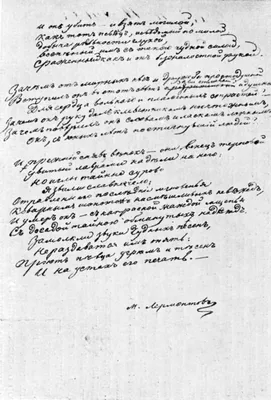 И он убит — и взят могилой,
Как тот певец, неведомый но милой,
Добыча ревности глухой,
Воспетый им с такою чудной силой,
Сраженный, как и он, безжалостной рукой.
Зачем от мирных нег и дружбы простодушной
Вступил он в этот свет завистливый и душный
Для сердца вольного и пламенных страстей?
Зачем он руку дал клеветникам ничтожным,
Зачем поверил он словам и ласкам ложным,
Он, с юных лет постигнувший людей?..
И прежний сняв венок — они венец терновый
Увитый лаврами надели на него;
Но иглы тайные сурово
Язвили славное чело;
Отравлены его последние мгновенья
Коварным шопотом насмешливых невежд,
И умер он — с напрасной жаждой мщенья
С досадой тайною обманутых надежд.
Замолкли звуки чудных песен,
Не раздаваться им опять:
Приют певца угрюм и тесен
И на устах его печать. —
М. Лермонтов